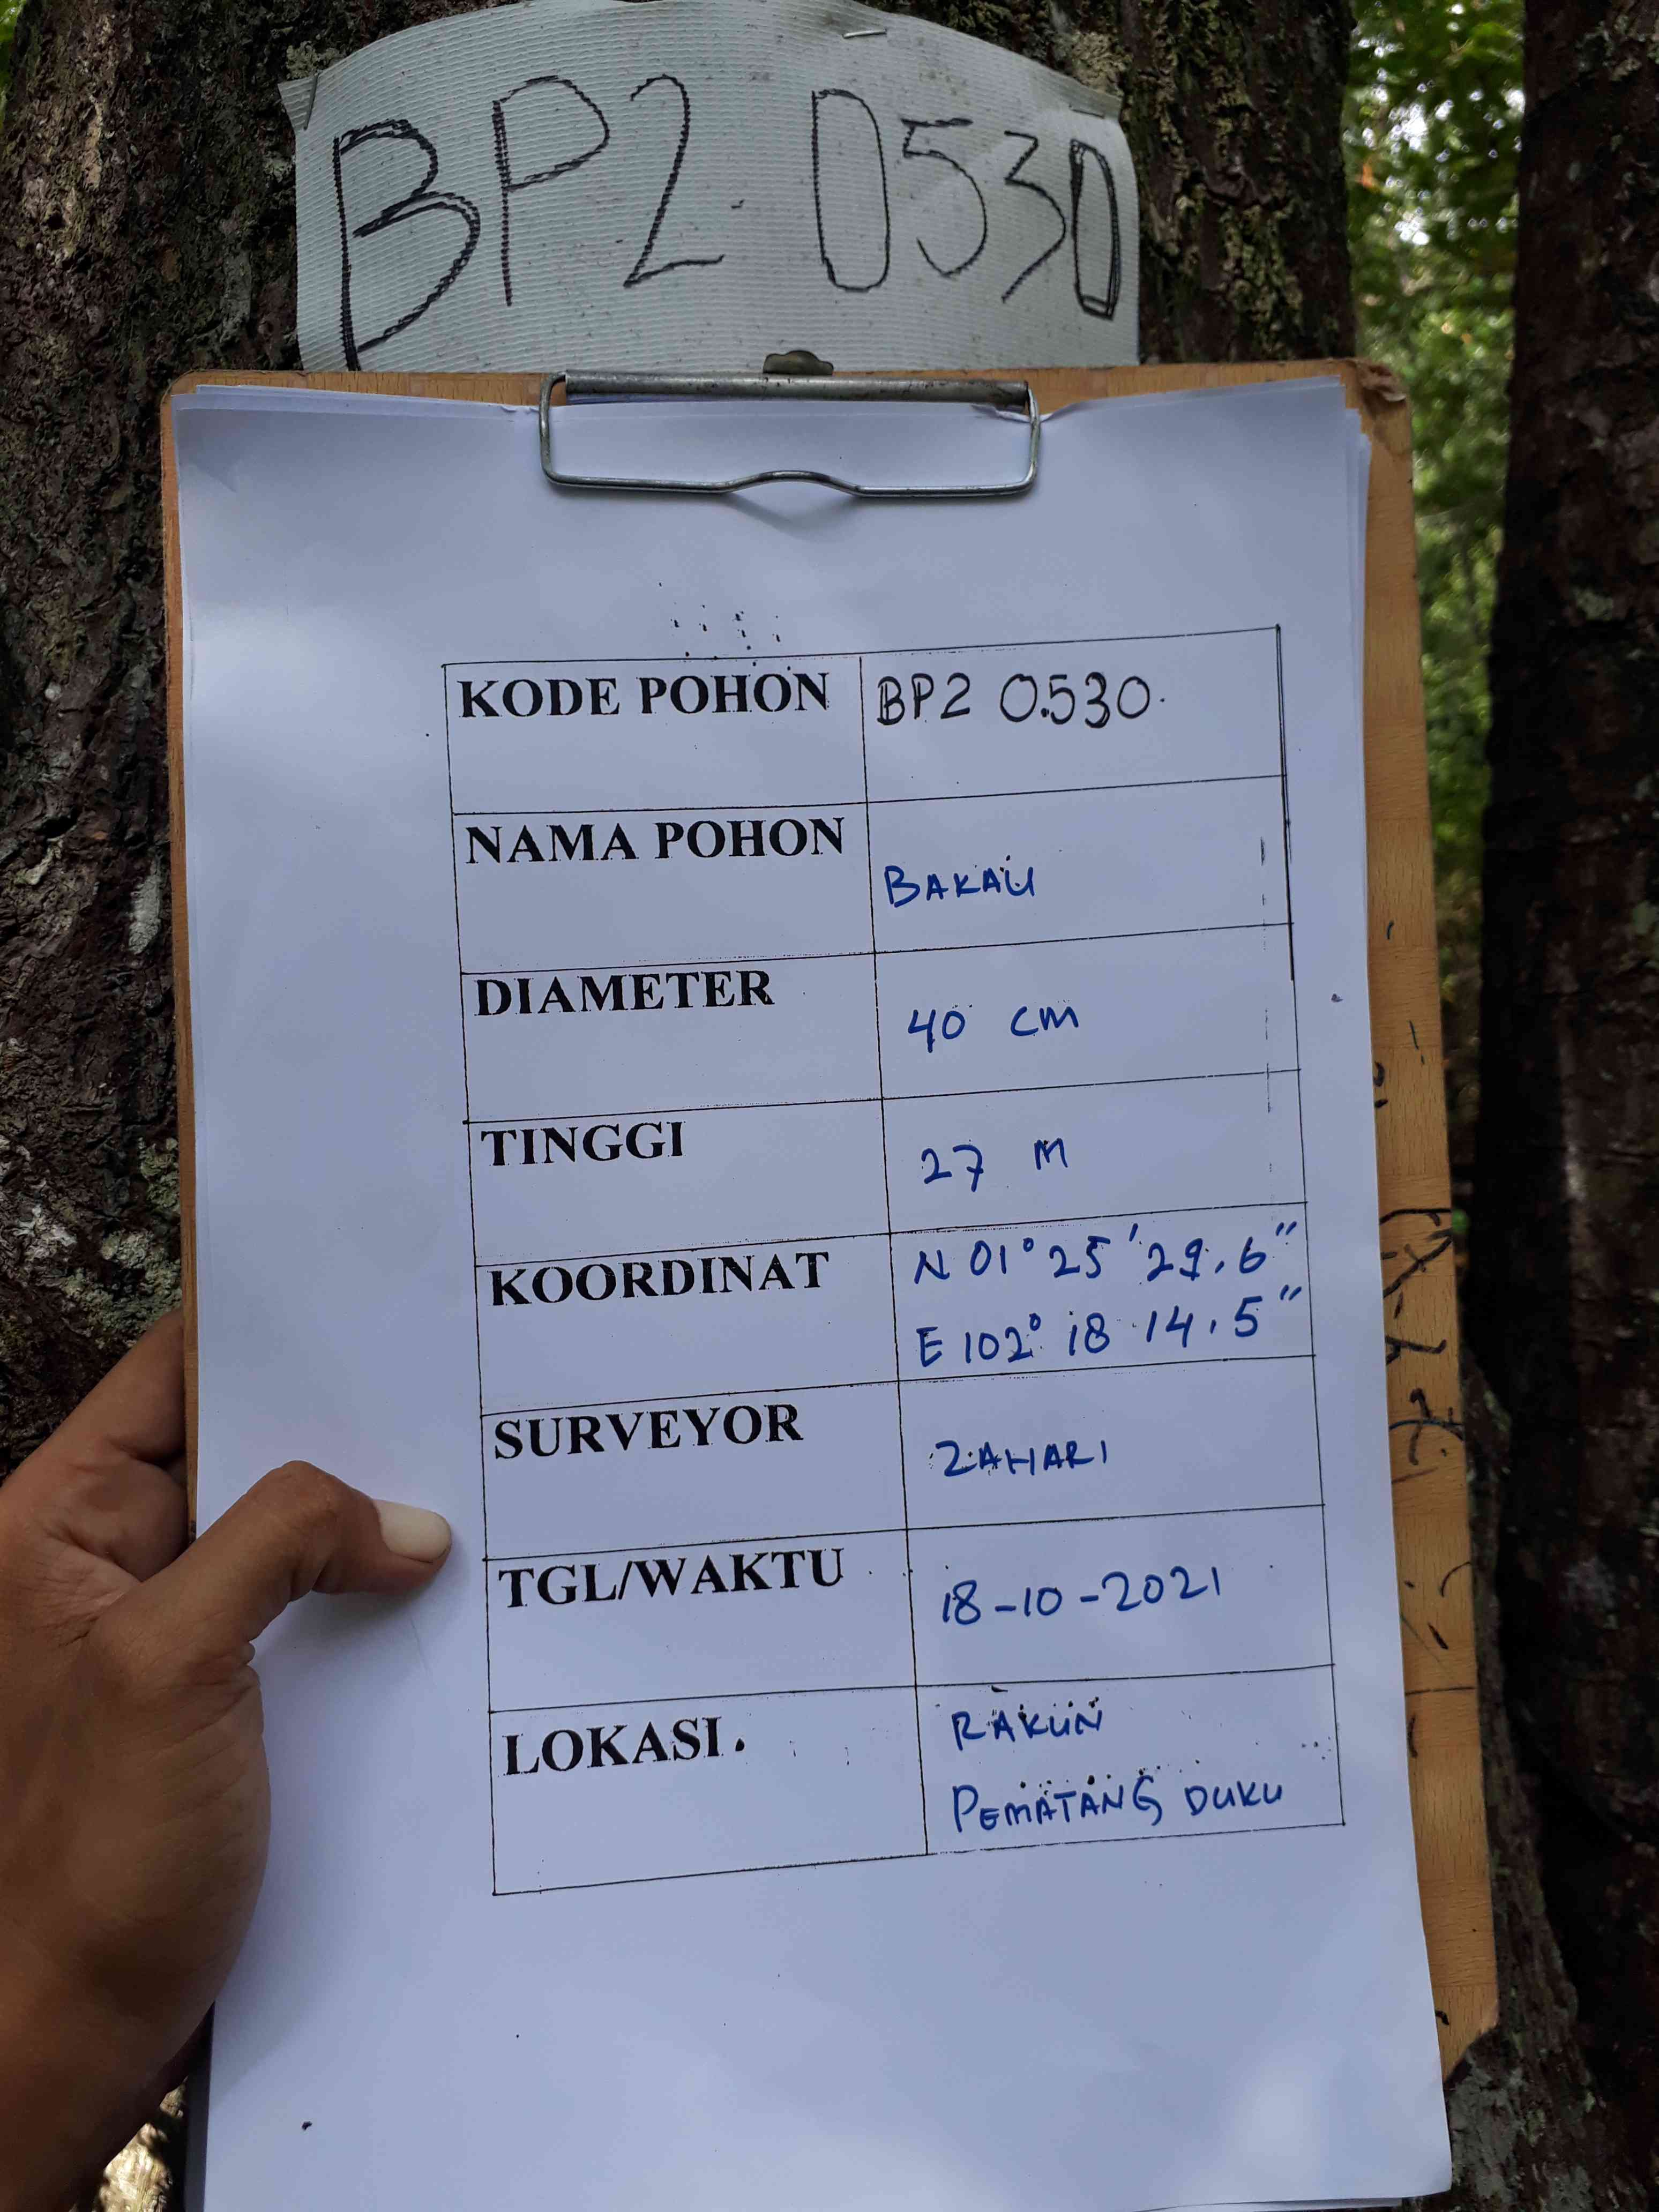 BP2 0530
KODE POHON BP2 0530
NAMA POHON BAKAU
DIAMETER 40 CM
TINGGI 27 M
KOORDINAT N 01° 25' 29.6"
E 102° 18 14.5"
SURVEYOR ZAHARI
TGL/WAKTU 18-10-2021
LOKASI. RAKUN
PEMATANG DUKU